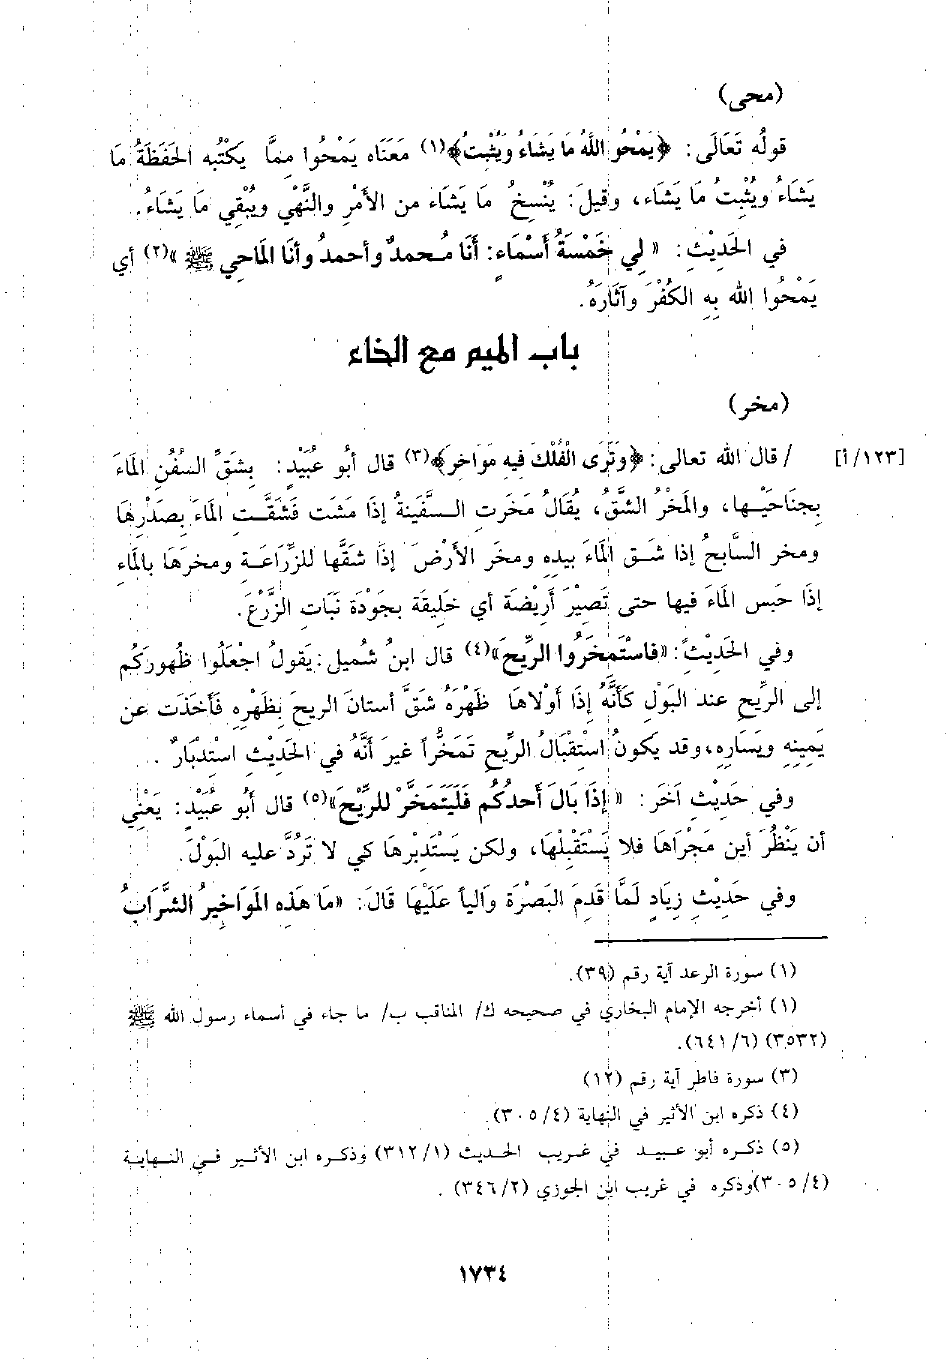 (محى)
قولُه تَعَالَى: ﴿يَمْحُو اللَّهُ مَا يَشَاءُ وَيُثْبِتُ﴾(١) مَعَنَاه يَمْحُوا مِمَّا يَكْتُبه الحَفَظَةُ مَا
يَشَاءُ ويُثْبِتُ مَا يَشَاء، وقيلَ: يُنْسِخُ مَا يَشَاء من الأمْرِ والنَّهْي ويُبْقِي مَا يَشَاءُ.
في الحَدِيْثِ: « لِي خَمْسَةُ أَسْمَاءٍ: أنَا مُحمدٌ وأحمدُ وأنَا المَاحِي ﷺ »(٢) أي
يَمْحُوا الله بِهِ الكُفْرَ وآثَارَهُ.
باب الميم مع الخاء
(مخر)
[١٢٣/أ] / قال الله تعالى: ﴿وَتَرَى الْفُلْكَ فِيهِ مَوَاخِرَ﴾(٣) قال أبُو عُبَيْدٍ: بِشَقِّ السُفُنِ المَاءَ
بِجنَاحَيْهَا، والمَخْرُ الشَّقُ، يُقَالُ مَخَرَتِ السَّفِينَةُ إذَا مَشَت فَشَقَّت المَاءَ بِصَدْرِهَا
ومخر السَّابحُ إذا شَق المَاءَ بيدِه ومخَر الأرْضَ إذَا شقَّها للزِّرَاعَةِ ومخرَهَا بالمَاءِ
إذَا حَبس المَاءَ فيها حتى تَصِيْرَ أَرِيْضَة أي خَلِيقَة بجَوْدَة نَبَات الزَّرْعَ.
وفي الحَدِيْثِ: «فاسْتَمْخِرُوا الرِّيحَ»(٤) قال ابنُ شُميل: يَقولُ اجْعَلُوا ظُهورَكُم
إلى الرِّيحِ عند البَوْلِ كَأَنَّهُ إذَا أوْلاهَا ظَهْرَهُ شَقَّ أستَانَ الريحَ بِظَهْرِهِ فَأَخَذَت عن
يَمِينِهِ ويَسَارِهِ، وقد يَكونُ اسْتِقْبَالُ الرِّيحِ تَمَخُّراً غيرَ أنَّهُ في الحَدِيْثِ اسْتِدْبَارٌ .
وفي حَدِيْثِ آخَرَ: « إذَا بَالَ أحدُكُم فَلَيَتَمَخَّرْ للرِّيْحَ»(٥) قال أبُو عُبَيْدٍ: يَعْنِي
أن يَنْظُرَ أين مَجْرَاهَا فلا يَسْتَقْبِلْهَا، ولكن يَسْتَدْبِرهَا كي لا تَرُدَّ عليه البَوْلَ.
وفي حَدِيْثِ زيَادٍ لَمَّا قَدِمَ البَصْرَة وَالياً عَلَيْهَا قَالَ: «مَا هَذِه المَوَاخِيرُ الشَّرَابُ
(١) سورة الرعد آية رقم (٣٩).
(١) أخرجه الإمام البخاري في صحيحه ك/ المناقب ب/ ما جاء في أسماء رسول الله ﷺ
(٣٥٣٢) (٦٤١/٦).
(٣) سورة فاطر آية رقم (١٢)
(٤) ذكره ابن الأثير في النهاية (٣٠٥/٤).
(٥) ذكره أبو عبيد في غريب الحديث (٣١٢/١) وذكره ابن الأثير في النهاية
(٣٠٥/٤) وذكره في غريب ابن الجوزي (٣٤٦/٢) .
١٧٣٤